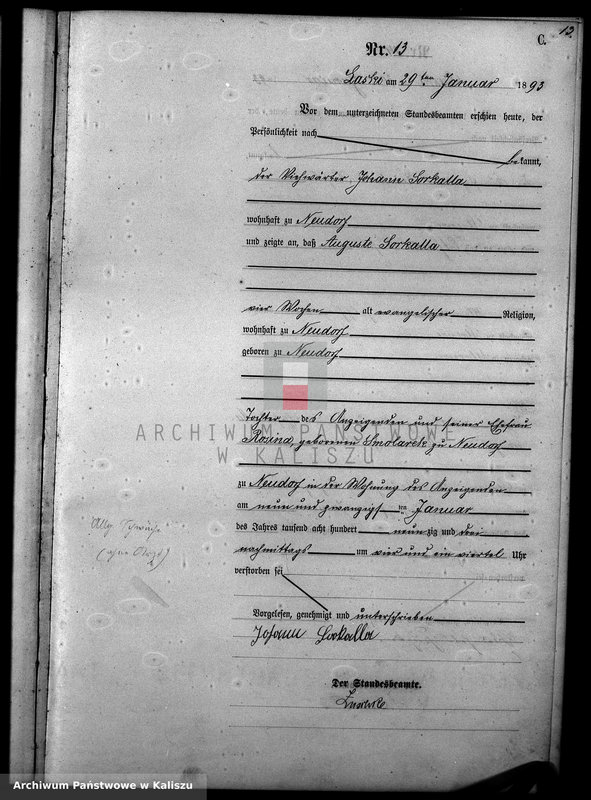 12.
C.
Nr. 13
Laski am 29ten Januar 1893
Vor dem unterzeichneten Standesbeamten erschien heute, der
Persönlichkeit nach
bekannt,
der Viehwärter Johann Sorkalla
wohnhaft zu Neudorf
und zeigte an, daß Auguste Sorkalla
vier Wochen alt evangelischer Religion,
wohnhaft zu Neudorf
geboren zu Neudorf
Tochter des Anzeigenden und seiner Ehefrau
Rosina, geborenen Smolarek zu Neudorf
ARCHIWUM PAŃSTWOWE
W KALISZU
zu Neudorf in der Wohnung des Anzeigenden
am neun und zwanzigsten Januar
des Jahres tausend acht hundert neunzig und drei
nachmittags um vier und ein viertel Uhr
verstorben sei
Allg. Schwäche
Vorgelesen, genehmigt und unterschrieben
Johann Sorkalla
Der Standesbeamte.
Archiwum Państwowe w Kaliszu